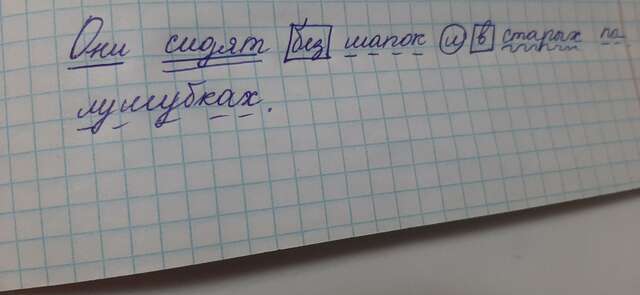 Они сидят без шапок и в старых по
лушубках.